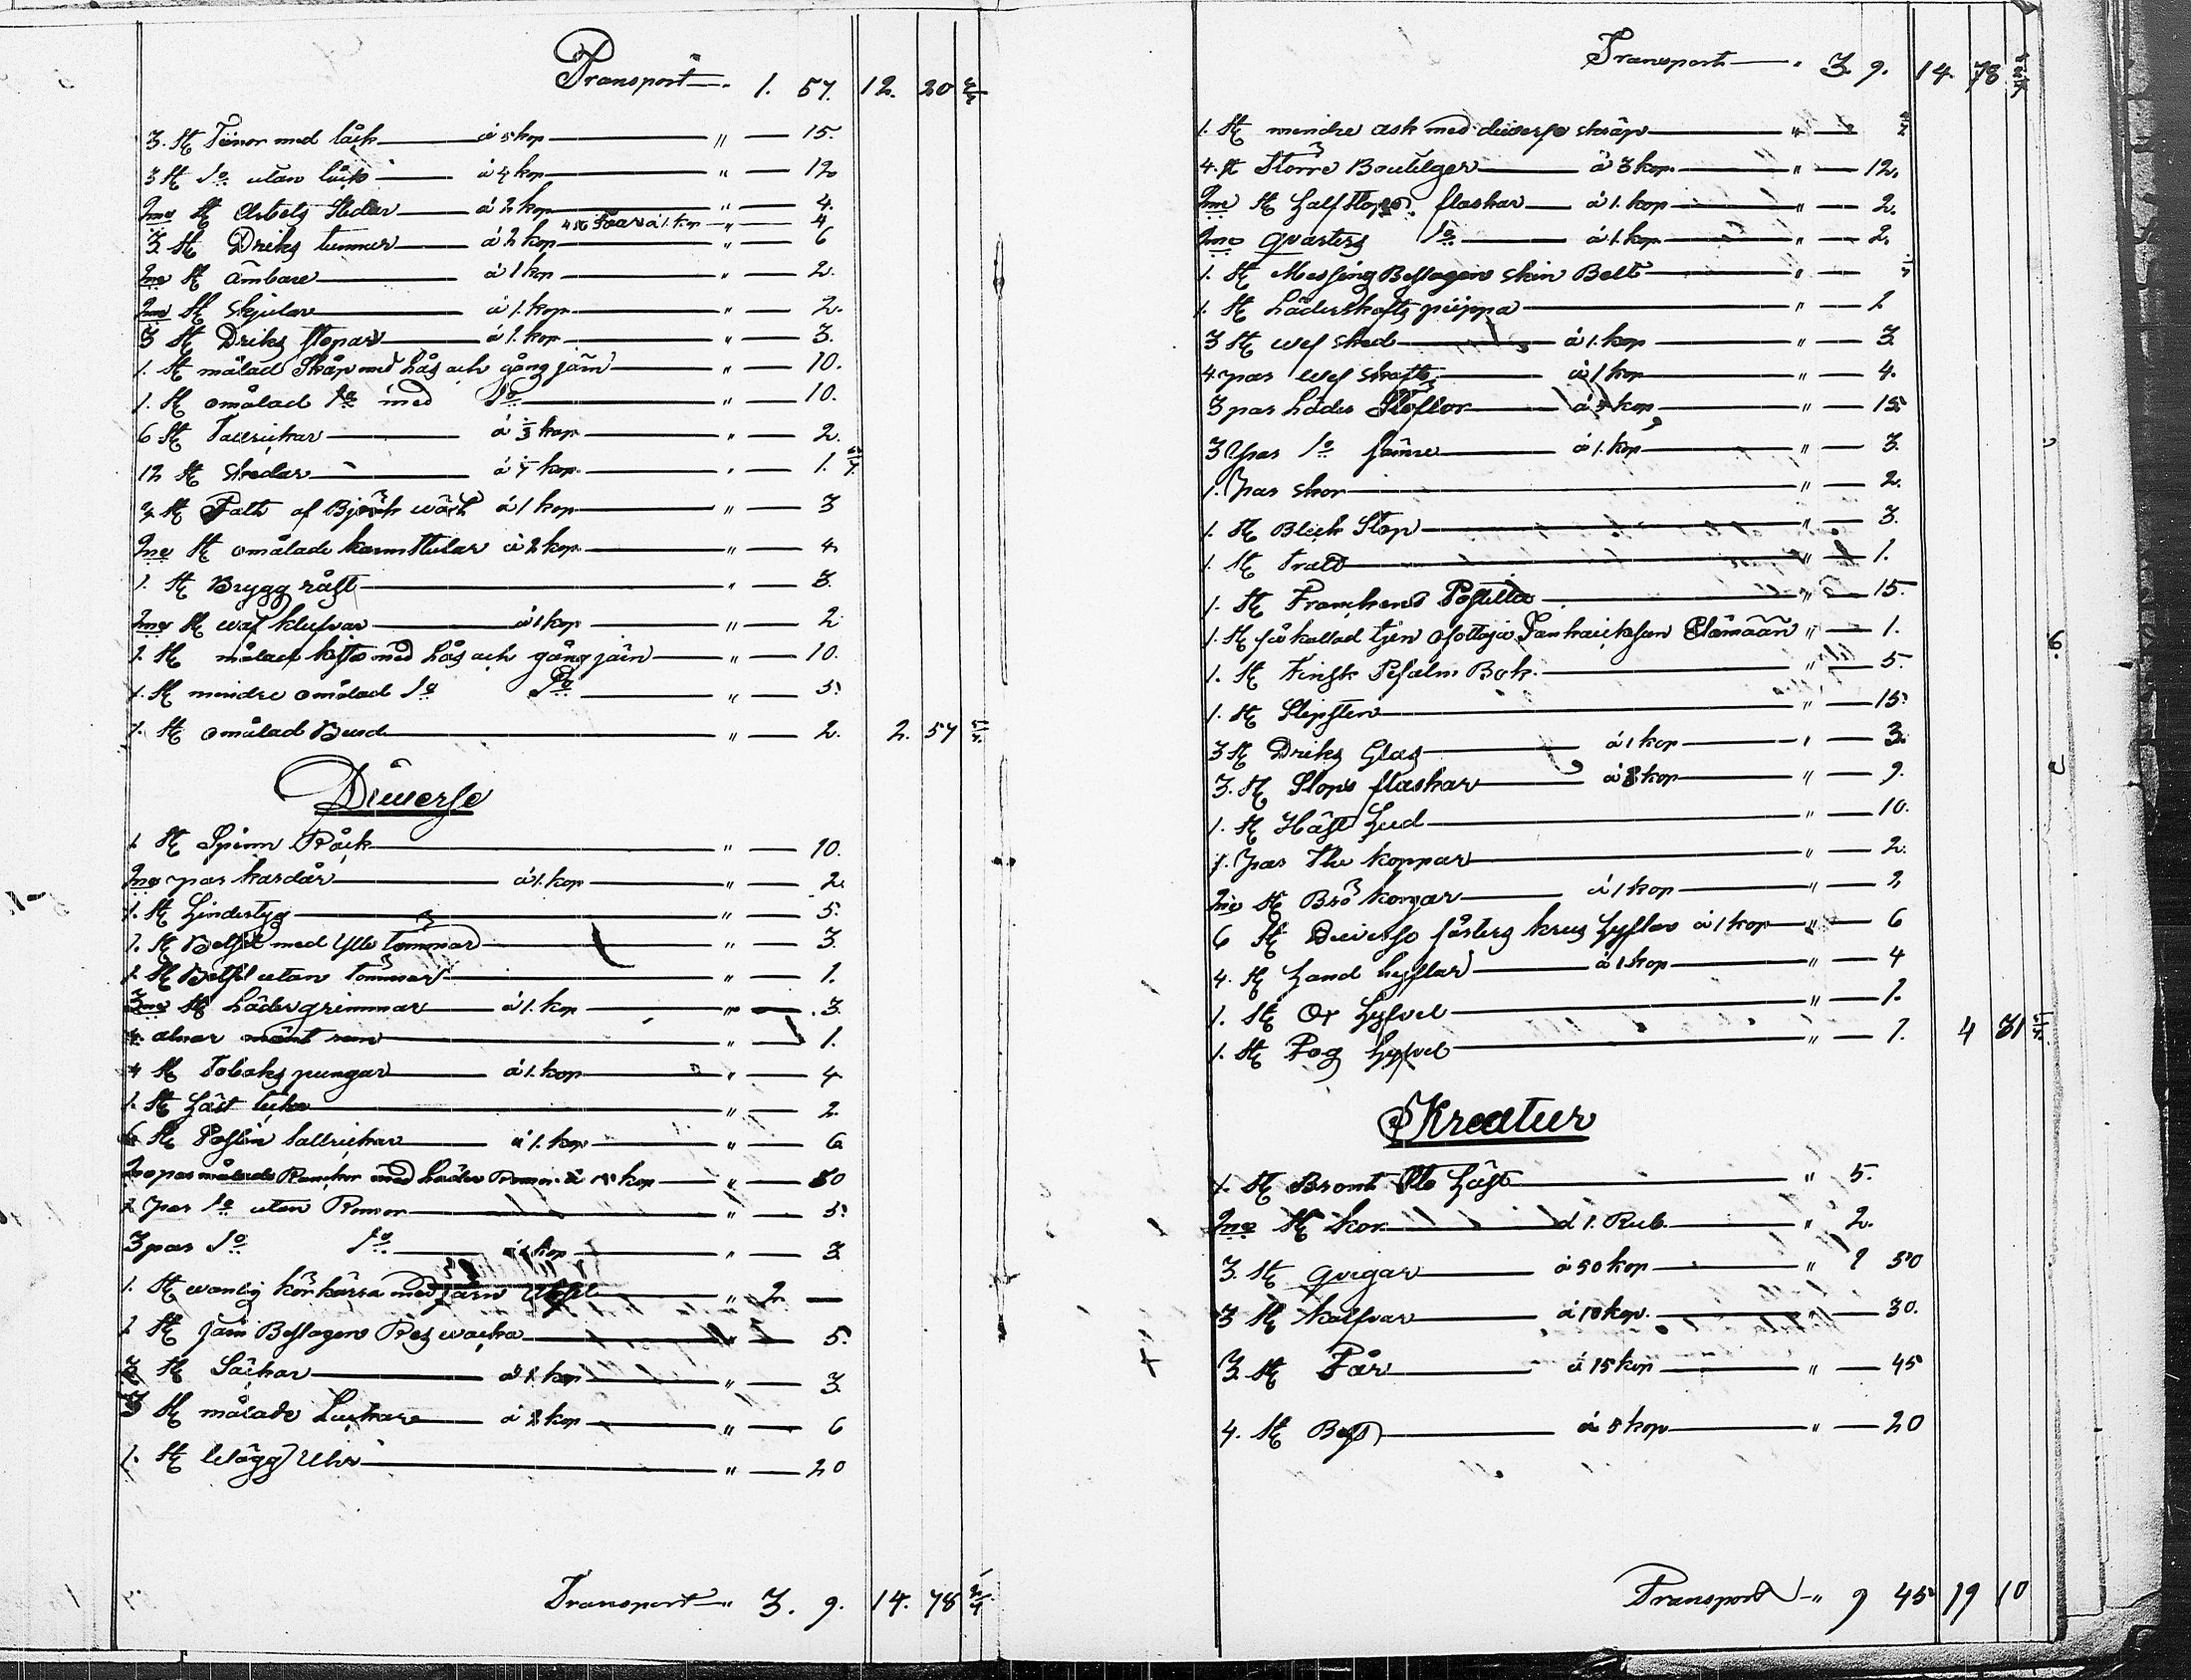 Transport 1. 57. 12. 20
3. St Tinor med låck à 5 kop " 15.
3 St Do utan låck à 4 kop " 12
2ne St Arbetz Sledar à 2 kop " 4.
4 St à 1. kop " 4
3. St Driks tunnor à 2 kop " 6
2ne St ämbare à 1 kop " 2.
2ne St Skjulor à 1. kop " 2.
3 St Driks stopar à 1. kop " 3.
1. St målad Skåp med Lås och gång järn " 10.
1. St omålad Do med Do " 10.
6 St Tallrickar à 1/3 kop " 2.
12 St skedar à kop " 1.
3 St Fath af Björk à 1 kop " 3
2ne St omålade karmstolar à 2 kop " 4.
1. St Brygg " 3.
2ne St klufvar à 1 kop " 2
1. St målad kista med Lås och gång järn " 10.
1. St mindre omålad Do Do " 5.
1. St omålad Bord " 2. 2. 57
Diverse
1 St Spinn Råck " 10.
2ne par kardår à 1. kop " 2.
1. St " 5.
1. St Betsel med Ylle tömmar " 3.
1. St Betsel utan tömmar " 1.
3ne St Lädergrimmar à 1. kop " 3
4. alnar rem " 1.
4 St Tobaks pungar à 1. kop " 4
1. St Häst " 2.
6 St Poslin tallrickar à 1. kop " 6
2ne par målade med Läder Remor à 15 kop " 30
1 par Do utan Remor " 5.
3 par Do Do à 1 kop " 3.
1. St wanlig kör kärra med järn " 2. —
1 St järn Beslagen " 5.
3 St Säckar à 1. kop " 3.
3 St målade à 2 kop " 6
1. St Wägg Uhr " 20
Transport " 3. 9. 14. 78
Transport " 3. 9. 14. 78
1. St mindre ask med diverse skräp "
4. St Större Boutelger à 3 kop " 12.
2ne St Halfstops flaskor à 1. kop " 2.
2ne qvarters Do à 1. kop " 2.
1. St Messing Beslagen skin Belt "
1. St Läderskafts " 1
3 St wef sked à 1. kop " 3
4. par wef skaft à 1 kop " 4.
3 par Läder Stöflor à 5 kop " 15
3 par Do sämre à 1. kop " 3.
1. par skor " 2.
1. St Bleck Stop " 3.
1. St Tratt " 1.
1. St Postilla " 15.
1. St så kallad " 1.
1. St Finsk Psalm Bok. " 5.
1. St Slipsten " 15.
3 St Driks Glas à 1 kop " 3.
3. St Stops flaskor à 3 kop " 9.
1. St Häst Hud " 10.
1. par The koppar " 2.
2ne St Brö korgar à 1 kop " 2
6 St Diverse krus Hyflar à 1 kop " 6
4. St Hand hyflar à 1 kop " 4
1. St Hyfvel " 1.
1. St Fog Hyfvel " 1. 4 31
Kreatur
1. St Brunt Sto Häst " 5.
2ne St kor à 1. Rub. " 2.
3. St qvigar à 50 kop " 1 50
3 St kalfvar à 10 kop. 30.
3. St Får à 15 kop " 45
4. St à 5 kop " 20
Transport " 9 45 19 10